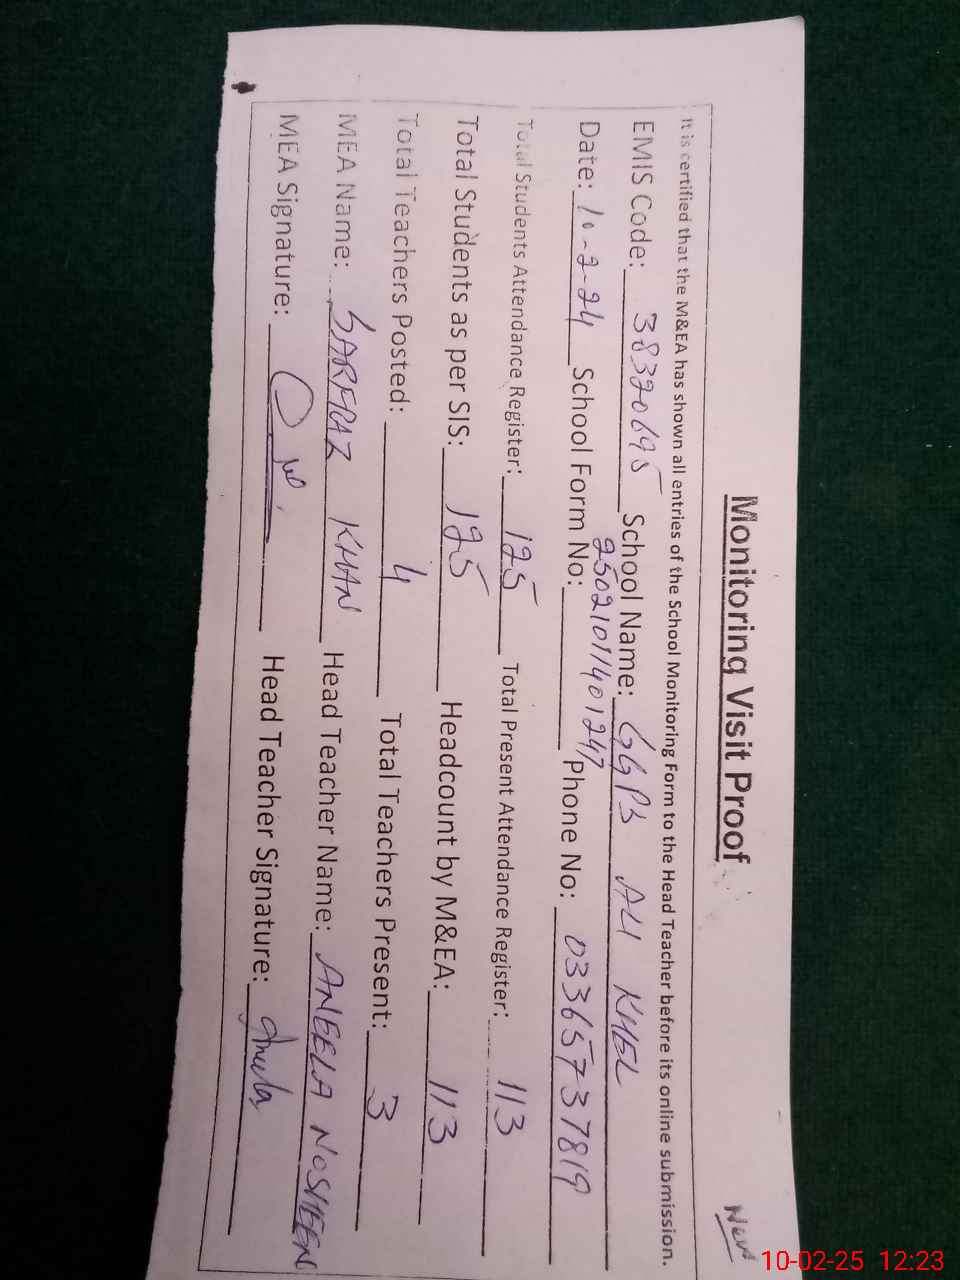 New
Monitoring Visit Proof
It is certified that the M&EA has shown all entries of the School Monitoring Form to the Head Teacher before its online submission.
EMIS Code: 38320695 School Name: GGPS ALI KHEL
Date: 10-2-24 School Form No: 2502101401247 Phone No: 03365737819
Total Students Attendance Register: 125 Total Present Attendance Register: 113
Total Students as per SIS: 125 Headcount by M&EA: 113
Total Teachers Posted: 4 Total Teachers Present: 3
MEA Name: SARFRAZ KHAN Head Teacher Name: ANEELA NOSHEEN
MEA Signature: Head Teacher Signature: Aneela
10-02-25 12:23